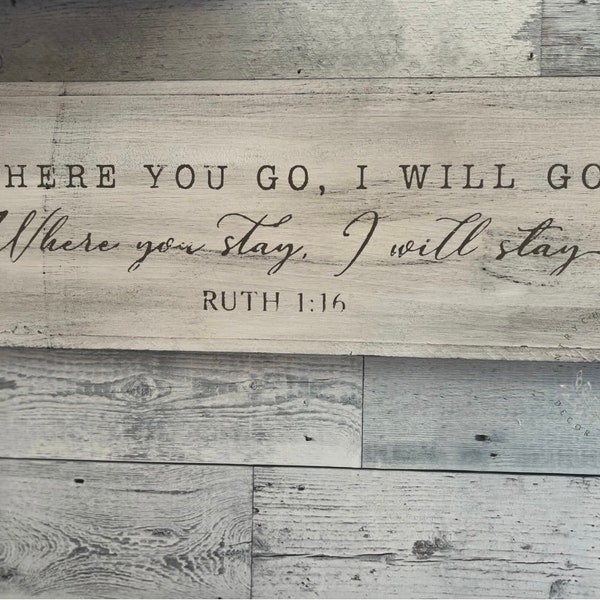 HERE YOU GO, I WILL GO
Where you stay, I will stay
RUTH 1:16
DECOR